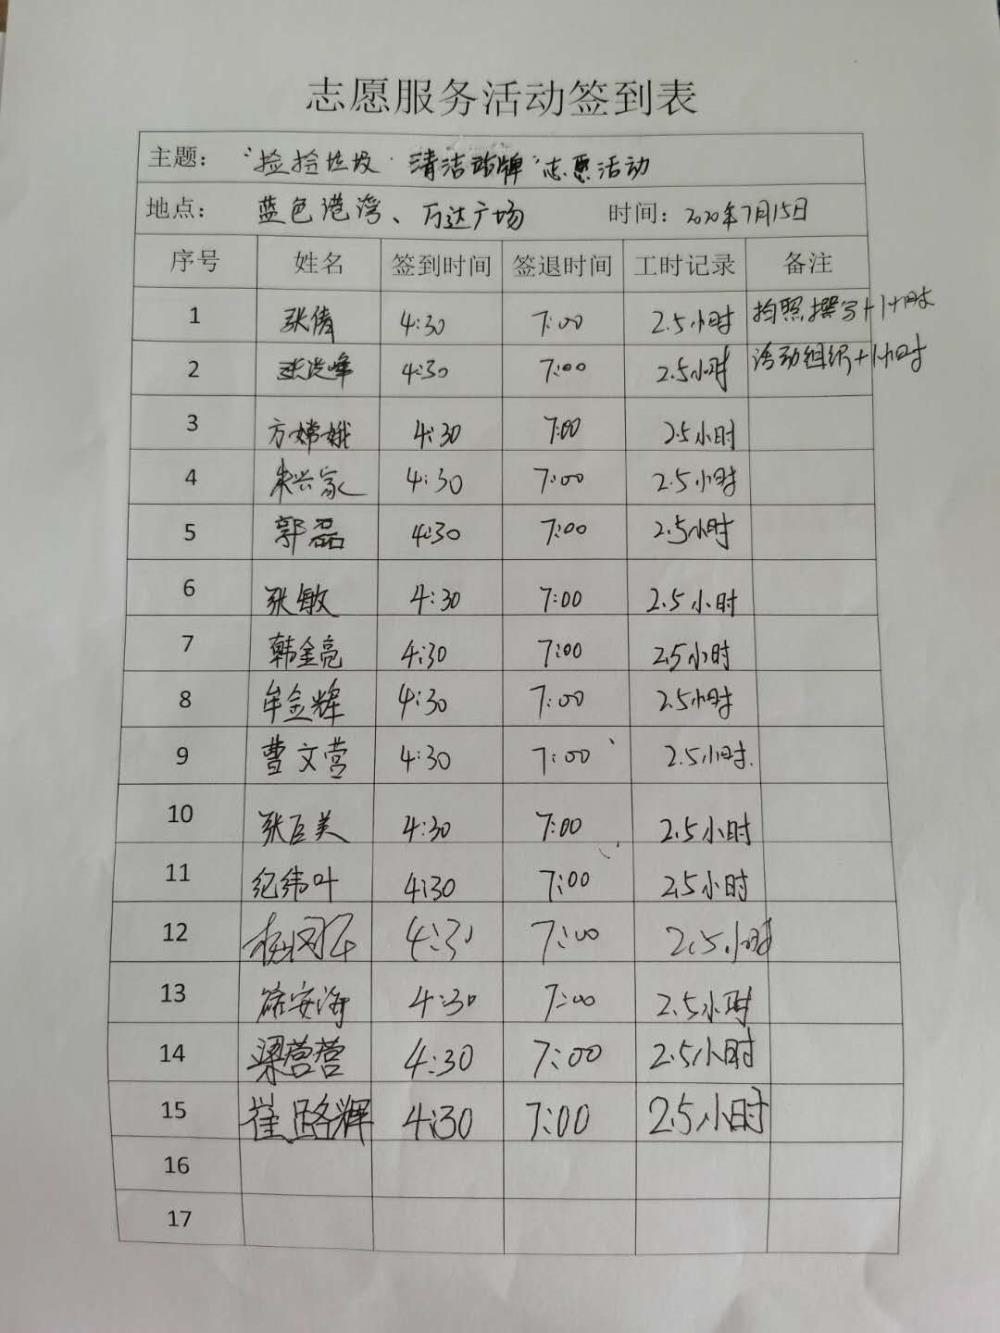 志愿服务活动签到表
主题： “捡捡垃圾 清洁站牌”志愿活动
地点： 蓝色港湾、万达广场 时间：2020年7月15日
序号 姓名 签到时间 签退时间 工时记录 备注
1 张倩 4:30 7:00 2.5小时 拍照撰写+1小时
2 张洪峰 4:30 7:00 2.5小时 活动组织+1小时
3 方嫦娥 4:30 7:00 2.5小时
4 朱兴家 4:30 7:00 2.5小时
5 郭磊 4:30 7:00 2.5小时
6 张敏 4:30 7:00 2.5小时
7 韩金亮 4:30 7:00 2.5小时
8 牟金辉 4:30 7:00 2.5小时
9 曹文营 4:30 7:00 2.5小时.
10 张巨美 4:30 7:00 2.5小时
11 纪纬叶 4:30 7:00 2.5小时
12 4:30 7:00 2.5小时
13 4:30 7:00 2.5小时
14 梁营营 4:30 7:00 2.5小时
15 崔路辉 4:30 7:00 2.5小时
16
17